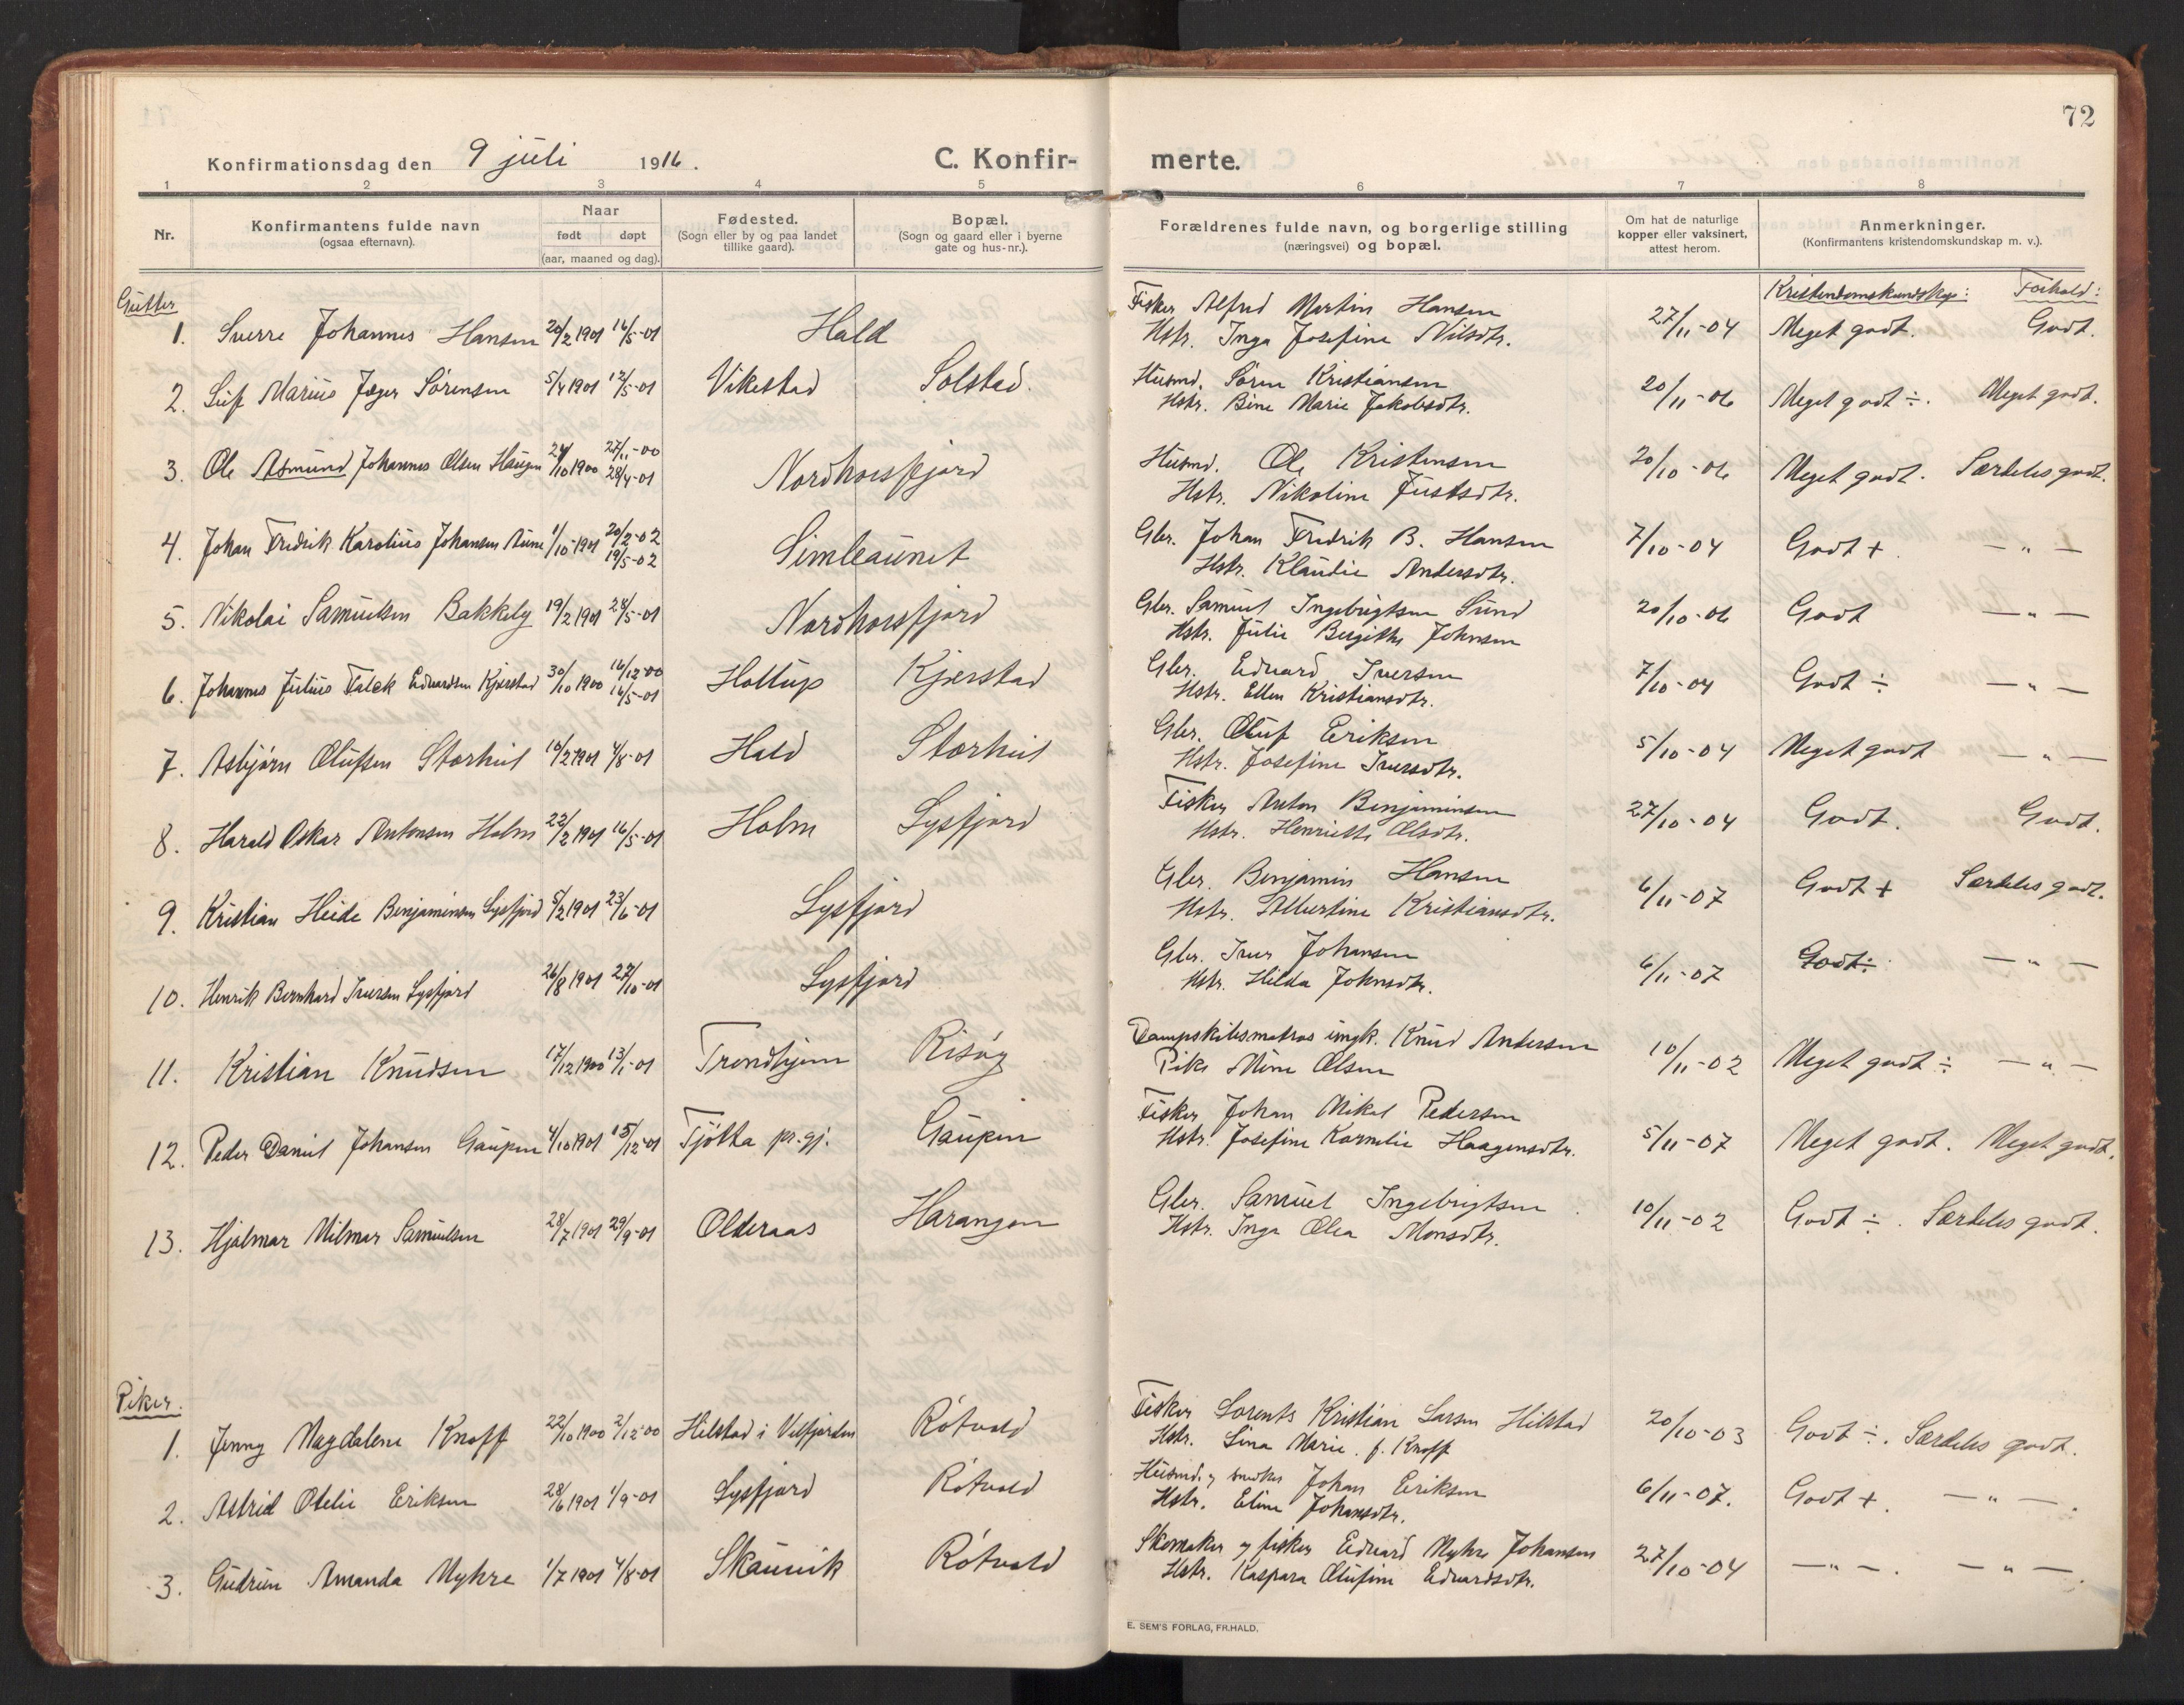 72
Konfirmationsdag den 9 juli 1916.
C. Konfirmerte.
1 2 3 4 5 6 7 8
Nr.
Konfirmantens fulde navn
(ogsaa efternavn).
Naar
født døpt
(aar, maaned og dag).
Fødested.
(Sogn eller by og paa landet
tillike gaard).
Bopæl.
(Sogn og gaard eller i byerne
gate og hus-nr.).
Forældrenes fulde navn, og borgerlige stilling
(næringsvei) og bopæl.
Om hat de naturlige
kopper eller vaksinert,
attest herom.
Anmerkninger.
(Konfirmantens kristendomskundskap m. v.).
Gutter
Kristendomskundskap: Forhold:
1. Sverre Johannes Hansen 20/2 1901 16/5-01 Hald
Fisker Alfred Martin Hansen
Hstr. Inga Josefine Nilsdtr. 27/11-04 Meget godt. Godt.
2. Leif Marius Jæger Sørensen 5/4 1901 12/5-01 Vikestad Solstad.
Husmd. Søren Kristiansen
Hstr. Bine Marie Jakobsdtr. 20/11-06 Meget godt ÷. Meget godt.
3. Ole Asmund Johannes Olsen Haugen 24/10 1900 27/11-00 28/4-01 Nordhorsfjord
Husmd. Ole Kristensen
Hstr. Nikoline Justsdtr. 20/10-06 Meget godt. Særdeles godt.
4. Johan Fredrik Karolius Johansen Aune 1/10-1901 20/2-02 19/5-02 Simleaunet
Gbr. Johan Fredrik B. Hansen
Hstr. Klaudie Andersdtr. 7/10-04 Godt + — " —
5. Nikolai Samuelsen Bakkely 19/2 1901 28/5-01 Nordhorsfjord
Gbr. Samuel Ingebrigtsen Sund
Hstr. Julie Bergitte Johnsen 20/10-06 Godt — " —
6. Johannes Julius Falck Edvardsen Kjærstad 30/10 1900 16/12-00 16/5-01 Holtup Kjærstad
Gbr. Edvard Iversen
Hstr. Ellen Kristiansdtr. 7/10-04 Godt ÷ — " —
7. Asbjørn Olufsen Storhul 10/2 1901 4/8-01 Hald Storhul
Gbr. Oluf Eriksen
Hstr. Josefine Iversdtr. 5/10-04 Meget godt — " —
8. Harald Oskar Antonsen Holm 22/2 1901 16/5-01 Holm Lysfjord
Fisker Anton Benjaminsen
Hstr. Henriette Olsdtr. 27/10-04 Godt. Godt.
9. Kristian Heide Benjaminsen Lysfjord 5/2 1901 23/6-01 Lysfjord
Gbr. Benjamin Hansen
Hstr. Albertine Kristiansdtr. 6/11-07 Godt + Særdeles godt.
10. Henrik Bernhard Iversen Lysfjord 26/8 1901 27/10-01 Lysfjord
Gbr. Iver Johansen
Hstr. Hilda Johnsdtr. 6/11-07 Godt ÷ — " —
11. Kristian Knudsen 17/12 1900 13/1-01 Trondhjem Risøy
Dampskibsmatros ungk. Knud Andersen
Pike Mina Olsen 10/11-02 Meget godt ÷ — " —
12. Peder Daniel Johansen Gaupen 4/10 1901 15/12-01 Tjøtta pr.gj. Gaupen
Fisker Johan Mikal Pedersen
Hstr. Josefine Kornelie Haagensdtr. 5/11-07 Meget godt. Meget godt.
13. Hjalmar Hilmar Samuelsen 28/7 1901 29/9-01 Olderaas Harangen
Gbr. Samuel Ingebrigtsen
Hstr. Inga Olea Monsdtr. 10/11-02 Godt ÷. Særdeles godt.
Piker.
1. Jenny Magdalene Knoff 22/10 1900 2/12-00 Hilstad i Velfjorden Røtvold
Fisker Lorents Kristian Larsen Hilstad
Hstr. Lina Marie f. Knoff 20/10-03 Godt ÷. Særdeles godt.
2. Astrid Otelie Eriksen 28/6 1901 1/9-01 Lysfjord Røtvold
Husmd. og snedker Johan Eriksen
Hstr. Eline Johansdtr. 6/11-07. Godt +. — " —.
3. Gudrun Amanda Myhre 1/7 1901 4/8-01 Skauvik Røtvold
Skomaker og fisker Edvard Myhre Johansen
Hstr. Kaspara Olufine Edvardsdtr. 27/10-04 — " —. — " —.
E. SEM'S FORLAG, FR.HALD.